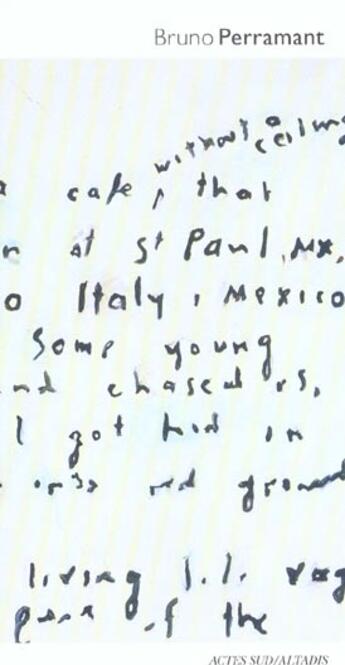 Bruno Perramant
without a ceiling
cafe, that
at St Paul, MX,
o Italy, Mexico
some young
nd chased us,
I got hid in
red ground
living
of the
ACTES SUD/ALTADIS